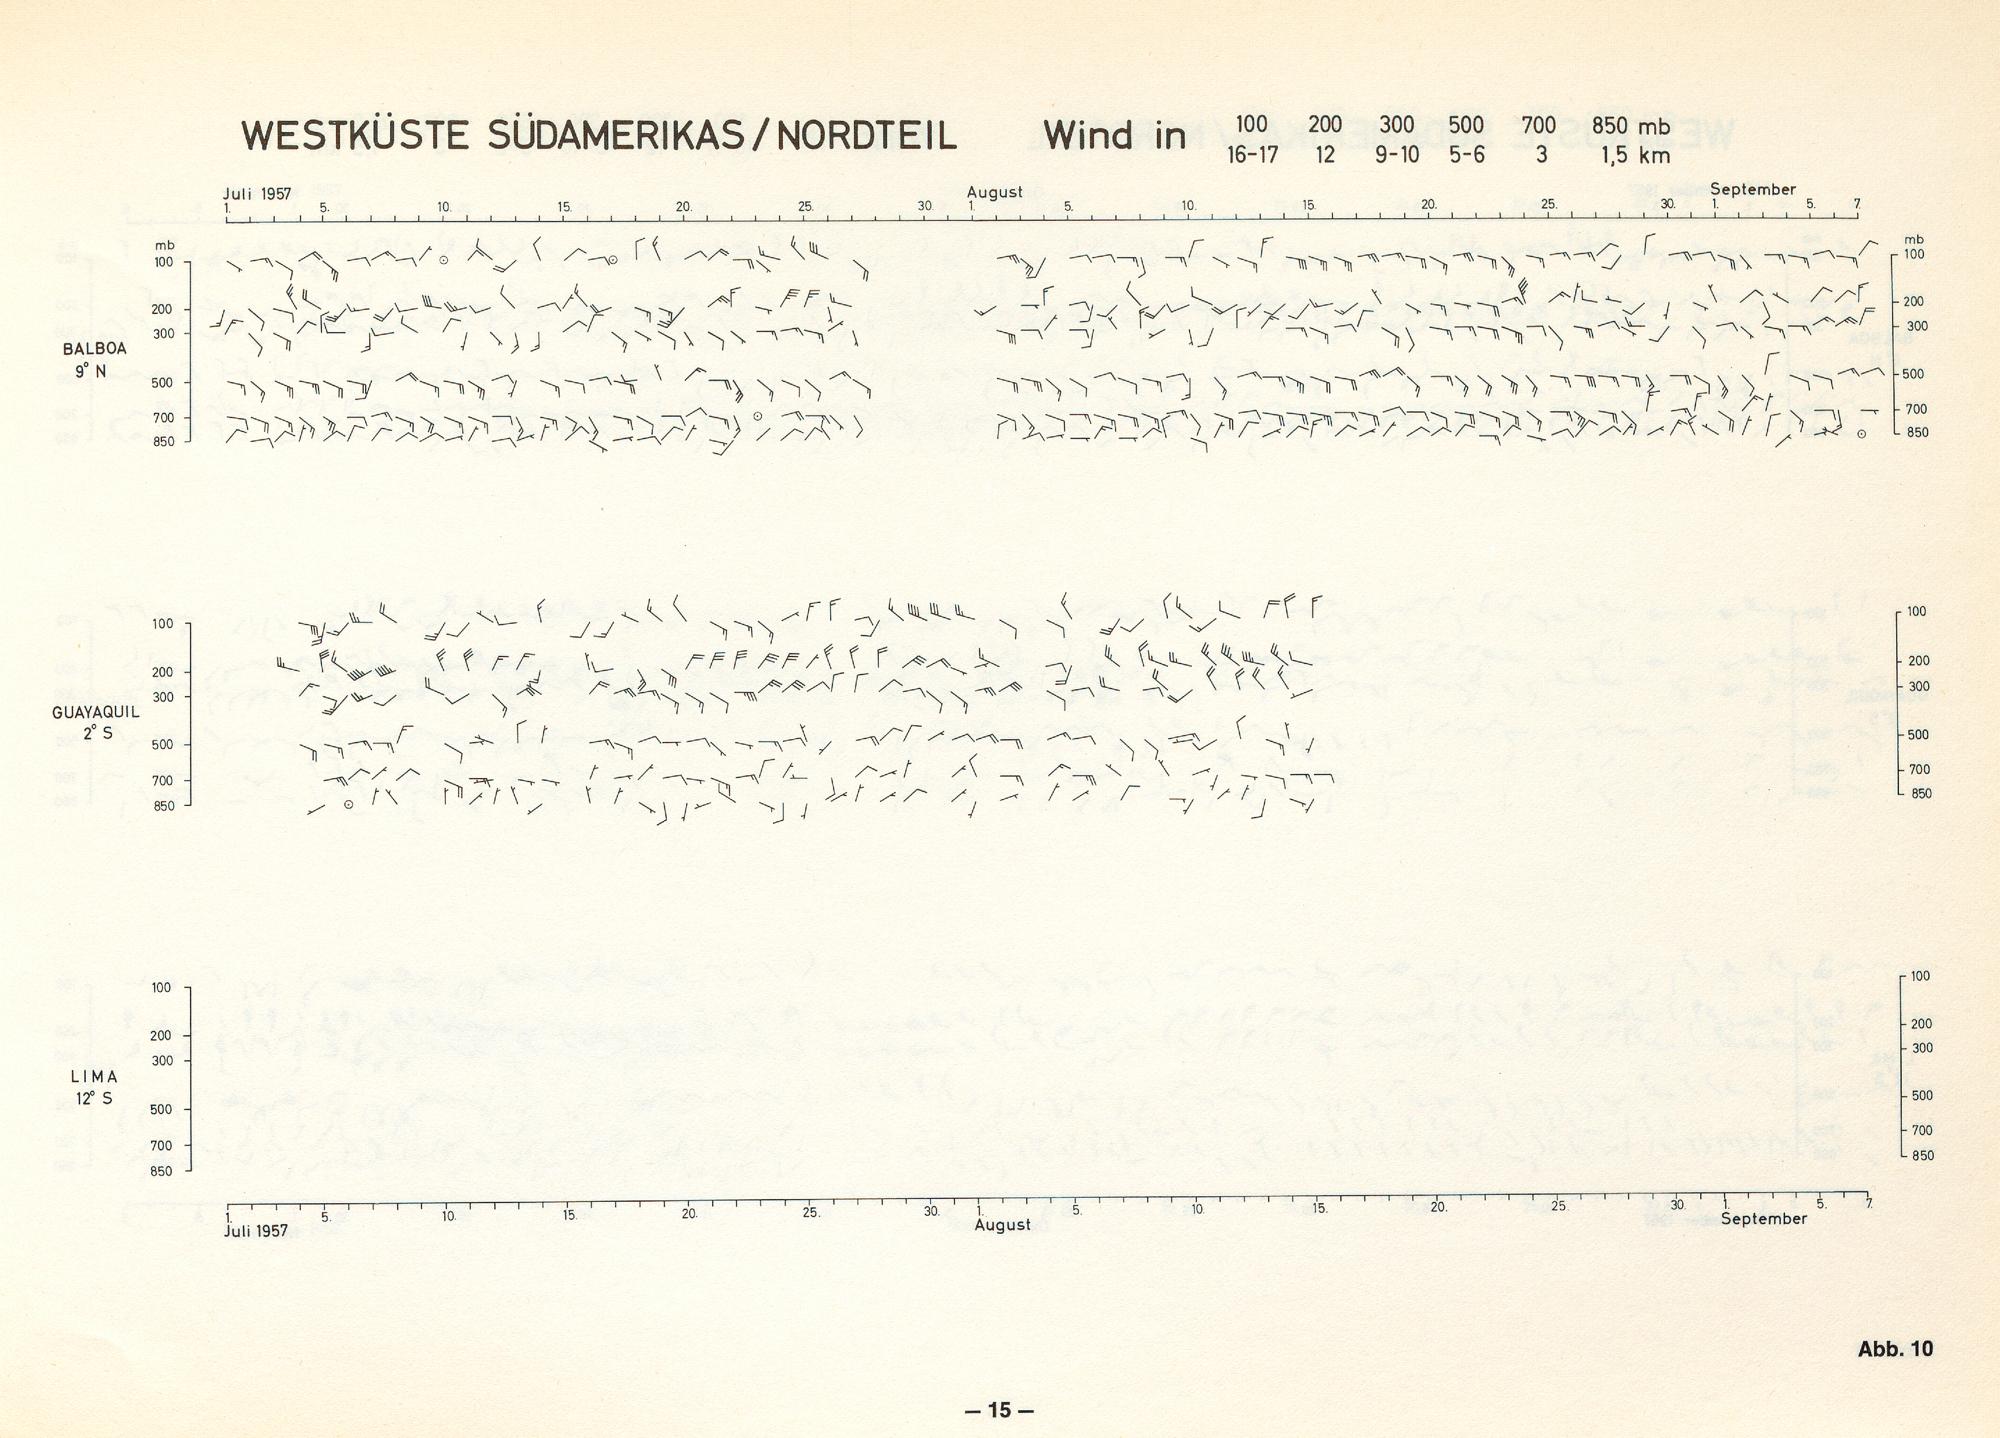 WESTKÜSTE SÜDAMERIKAS/NORDTEIL Wind in 100 200 300 500 700 850 mb
16-17 12 9-10 5-6 3 1,5 km
Juli 1957 August September
1. 5. 10. 15. 20. 25. 30. 1. 5. 10. 15. 20. 25. 30. 1. 5. 7.
mb mb
100 100
200 200
300 300
BALBOA
9° N
500 500
700 700
850 850
100 100
200 200
300 300
GUAYAQUIL
2° S
500 500
700 700
850 850
100 100
200 200
300 300
LIMA
12° S
500 500
700 700
850 850
1. 5. 10. 15. 20. 25. 30. 1. 5. 10. 15. 20. 25. 30. 1. 5. 7.
Juli 1957 August September
Abb. 10
— 15 —